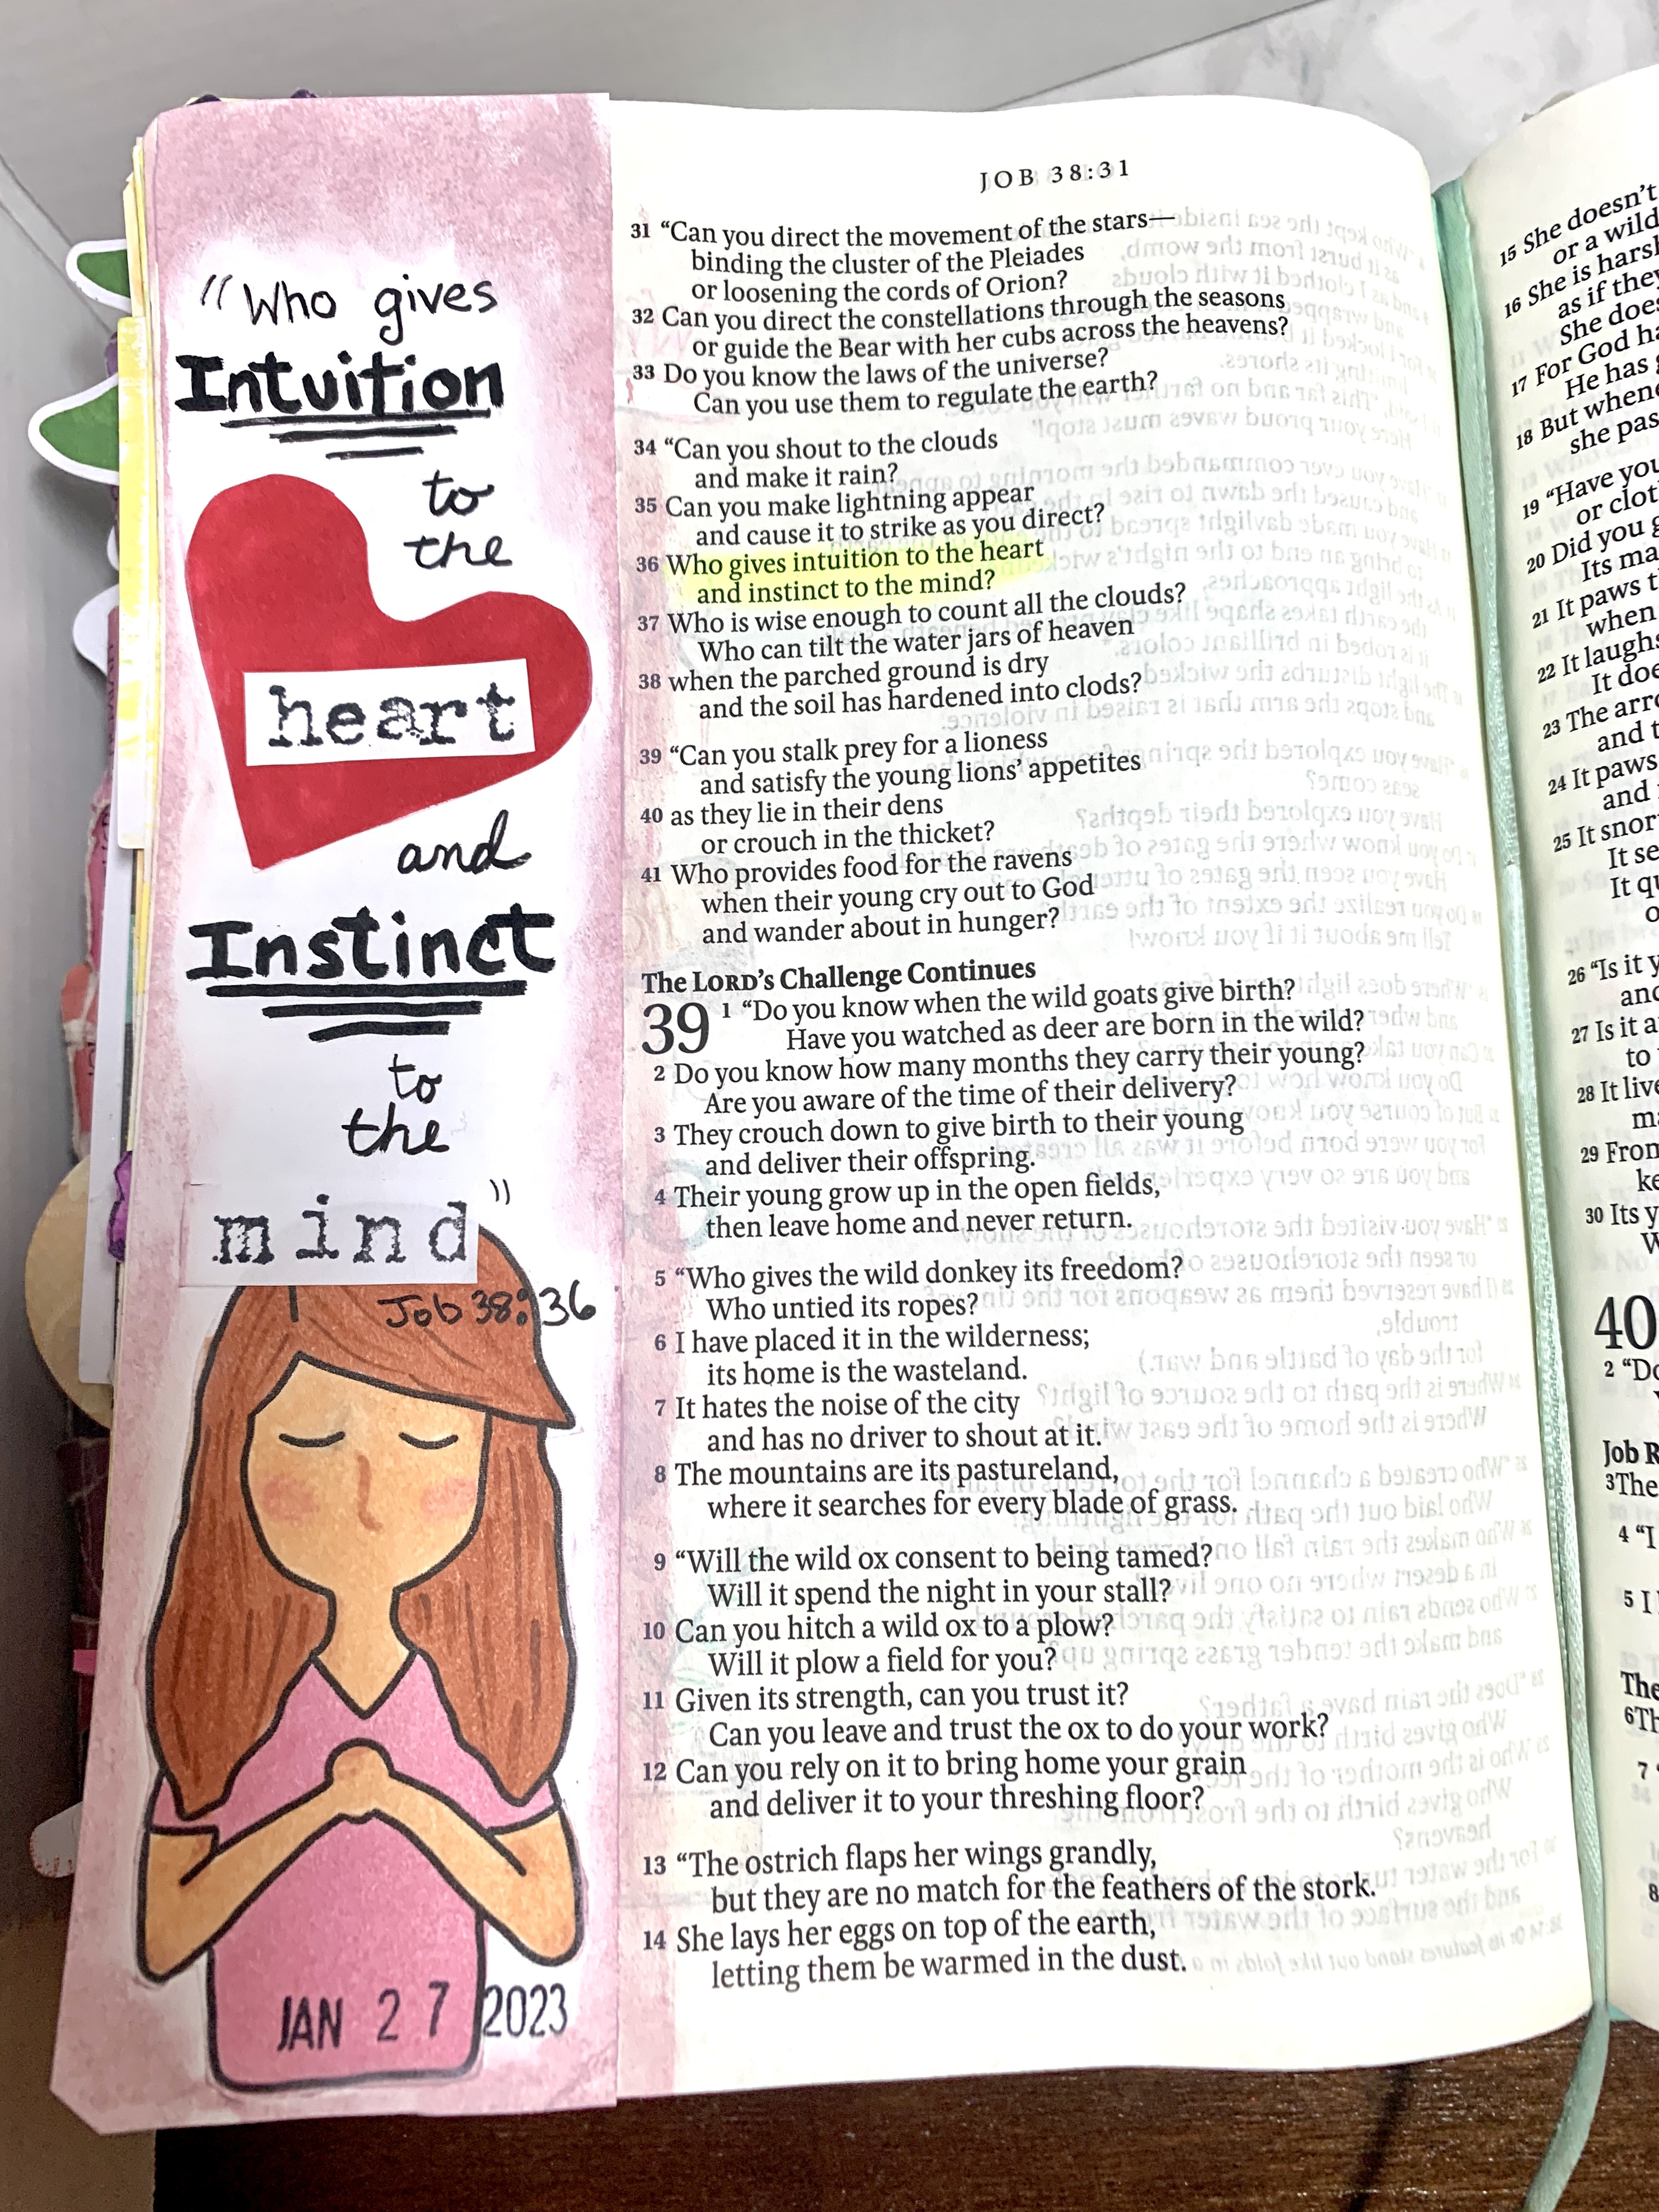 "Who gives
Intuition
to
the
heart
and
Instinct
to
the
mind"
Job 38:36
JAN 27 2023
JOB 38:31
31 “Can you direct the movement of the stars—
binding the cluster of the Pleiades
or loosening the cords of Orion?
32 Can you direct the constellations through the seasons
or guide the Bear with her cubs across the heavens?
33 Do you know the laws of the universe?
Can you use them to regulate the earth?
34 “Can you shout to the clouds
and make it rain?
35 Can you make lightning appear
and cause it to strike as you direct?
36 Who gives intuition to the heart
and instinct to the mind?
37 Who is wise enough to count all the clouds?
Who can tilt the water jars of heaven
38 when the parched ground is dry
and the soil has hardened into clods?
39 “Can you stalk prey for a lioness
and satisfy the young lions’ appetites
40 as they lie in their dens
or crouch in the thicket?
41 Who provides food for the ravens
when their young cry out to God
and wander about in hunger?
The LORD’s Challenge Continues
39 1 “Do you know when the wild goats give birth?
Have you watched as deer are born in the wild?
2 Do you know how many months they carry their young?
Are you aware of the time of their delivery?
3 They crouch down to give birth to their young
and deliver their offspring.
4 Their young grow up in the open fields,
then leave home and never return.
5 “Who gives the wild donkey its freedom?
Who untied its ropes?
6 I have placed it in the wilderness;
its home is the wasteland.
7 It hates the noise of the city
and has no driver to shout at it.
8 The mountains are its pastureland,
where it searches for every blade of grass.
9 “Will the wild ox consent to being tamed?
Will it spend the night in your stall?
10 Can you hitch a wild ox to a plow?
Will it plow a field for you?
11 Given its strength, can you trust it?
Can you leave and trust the ox to do your work?
12 Can you rely on it to bring home your grain
and deliver it to your threshing floor?
13 “The ostrich flaps her wings grandly,
but they are no match for the feathers of the stork.
14 She lays her eggs on top of the earth,
letting them be warmed in the dust.
15 She doesn’t
or a wild
16 She is harsh
as if they
She does
17 For God ha
He has
18 But whene
she pas
19 “Have you
or clot
20 Did you g
Its ma
21 It paws t
when
22 It laughs
It doe
23 The arro
and t
24 It paws
and
25 It snor
It se
It qu
o
26 “Is it y
and
27 Is it a
to
28 It live
ma
29 From
ke
30 Its y
W
40
2 “Do
Job R
3 The
4 “I
5 I
The
6 Th
7 “
8